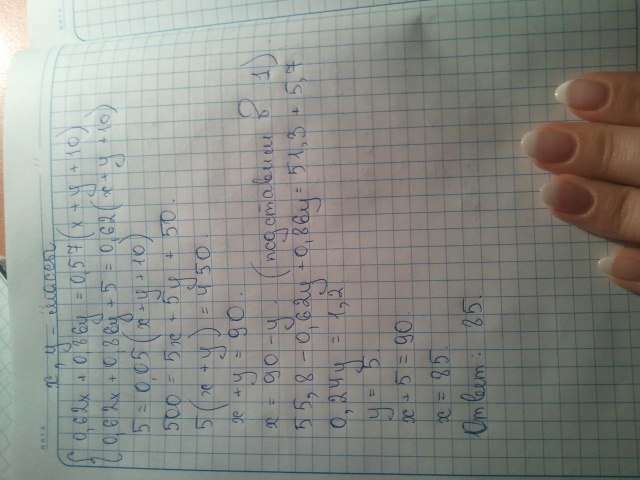 x, y - массы
0,62x + 0,86y = 0,57(x + y + 10)
0,62x + 0,86y + 5 = 0,62(x + y + 10)
5 = 0,05(x + y + 10)
500 = 5x + 5y + 50.
5(x + y) = 450.
x + y = 90.
x = 90 - y. (подставим в 1)
55,8 - 0,62y + 0,86y = 51,3 + 5,7
0,24y = 1,2
y = 5
x + 5 = 90
x = 85.
Ответ: 85.